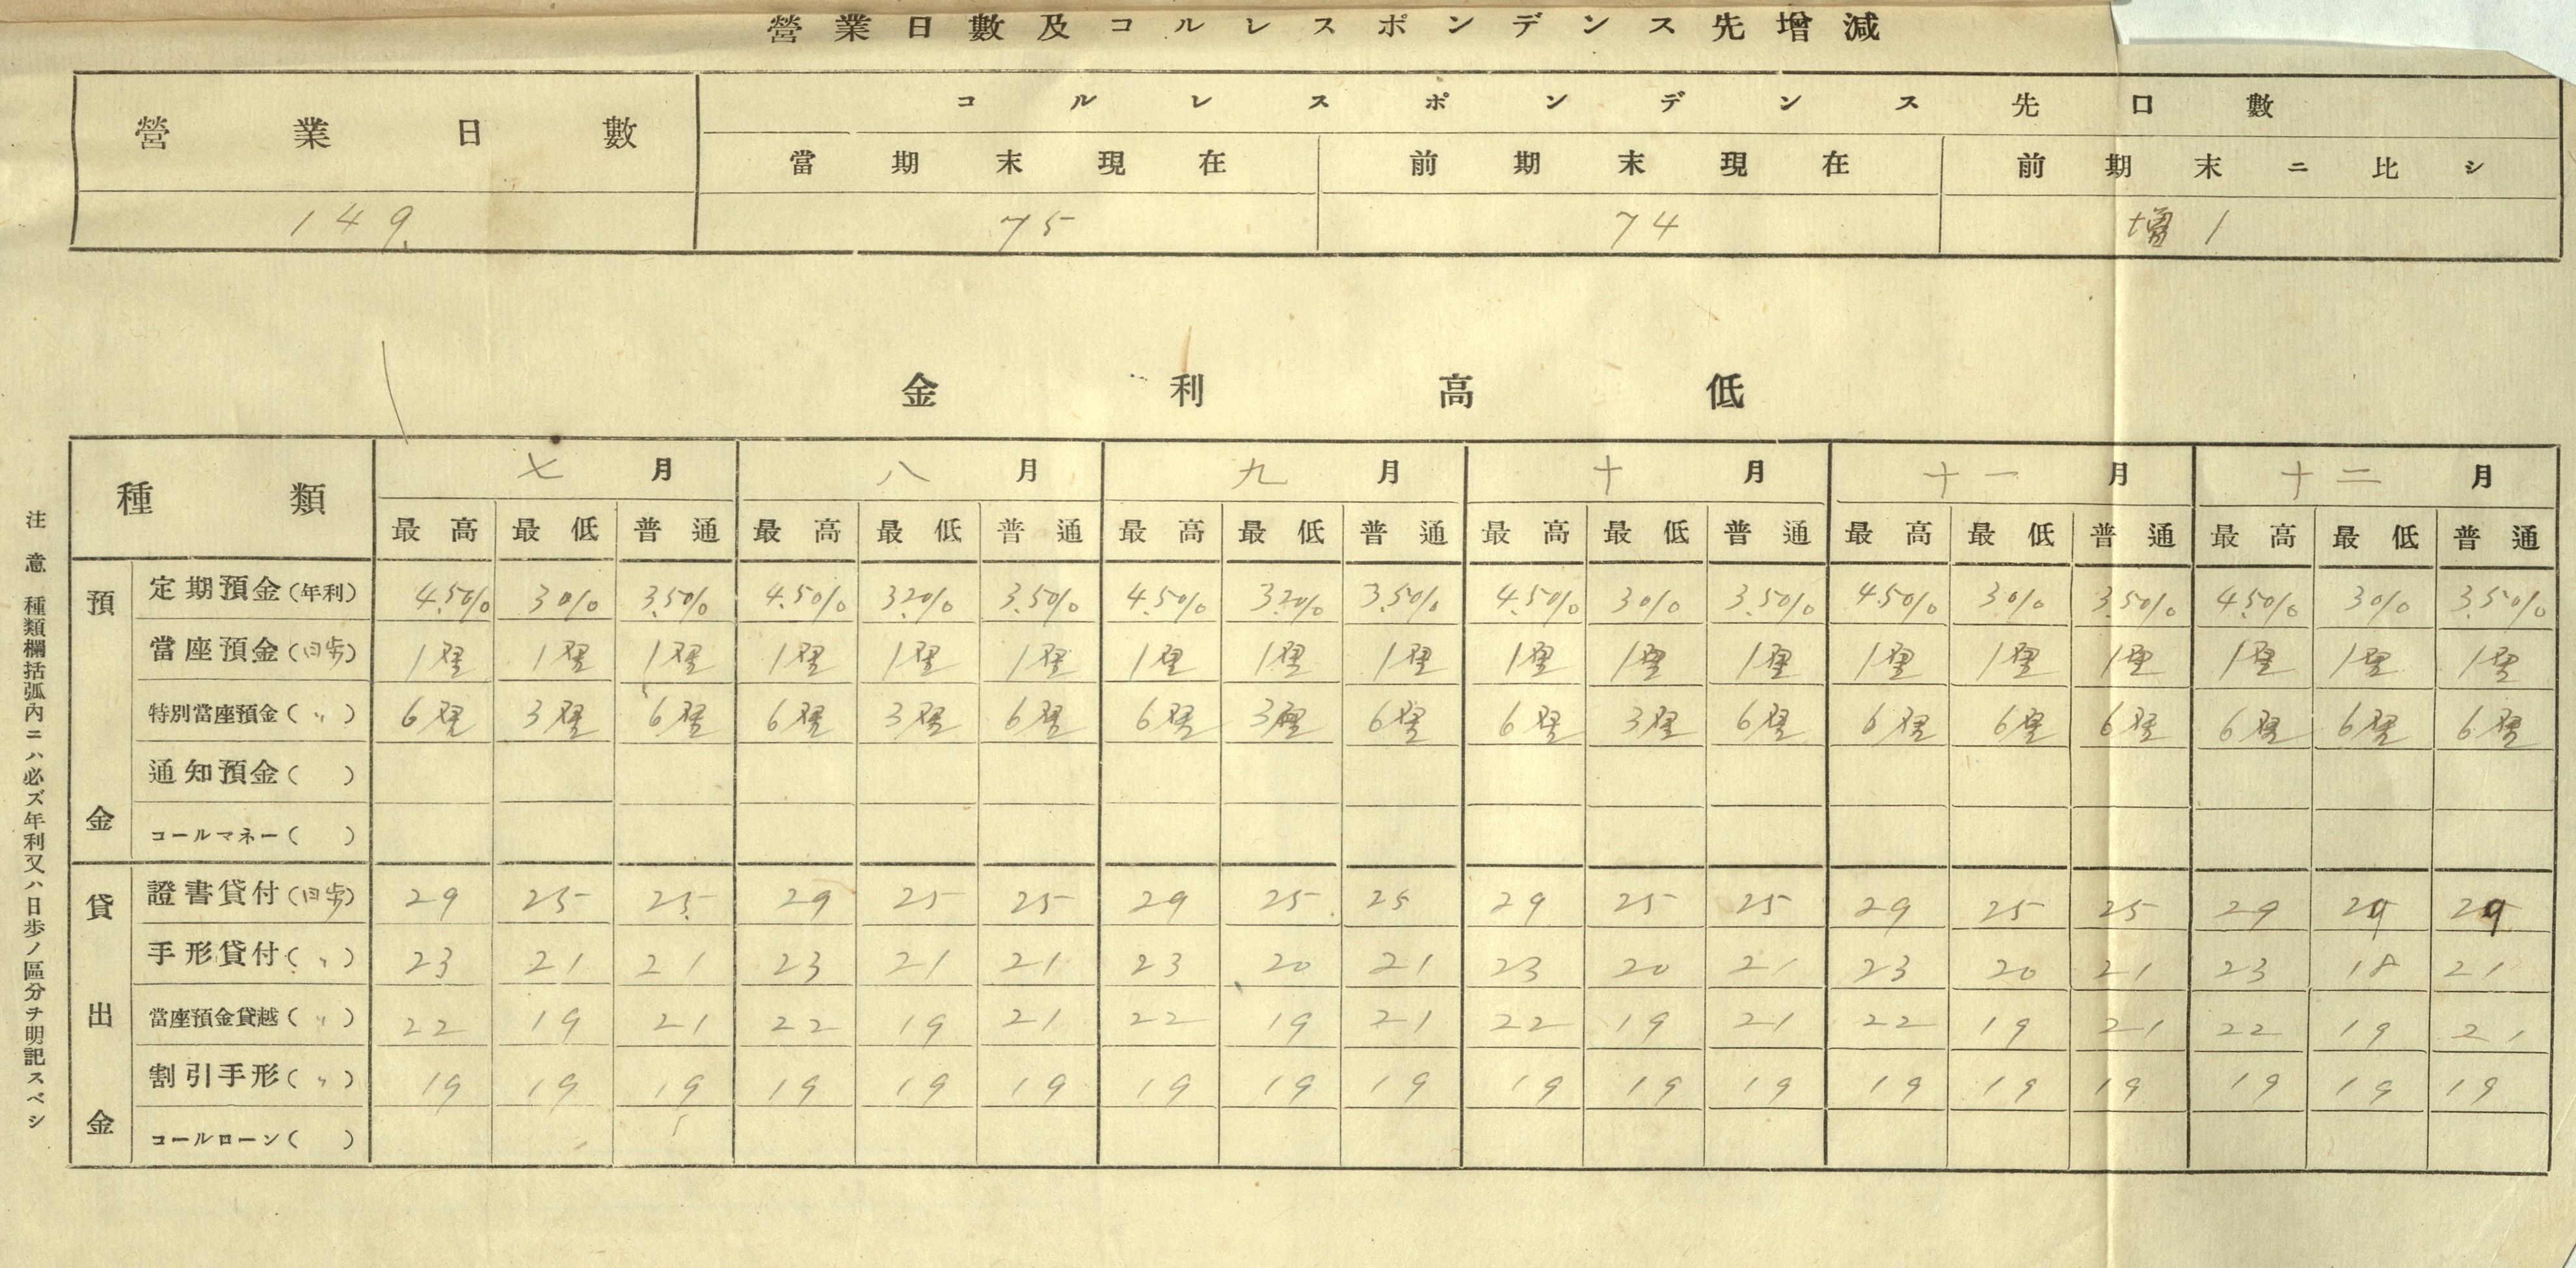 營業日數及コルレスポンデンス先增減
營業日數 コルレスポンデンス先口數
當期末現在 前期末現在 前期末ニ比シ
149. 75 74 增 1
金利高低
種類 七月 八月 九月 十月 十一月 十二月
最高 最低 普通 最高 最低 普通 最高 最低 普通 最高 最低 普通 最高 最低 普通 最高 最低 普通
預金
定期預金(年利) 4.50% 30% 3.50% 4.50% 3.20% 3.50% 4.50% 3.20% 3.50% 4.50% 30% 3.50% 4.50% 30% 3.50% 4.50% 30% 3.50%
當座預金(日歩) 1厘 1厘 1厘 1厘 1厘 1厘 1厘 1厘 1厘 1厘 1厘 1厘 1厘 1厘 1厘 1厘 1厘 1厘
特別當座預金(〃) 6厘 3厘 6厘 6厘 3厘 6厘 6厘 3厘 6厘 6厘 3厘 6厘 6厘 6厘 6厘 6厘 6厘 6厘
通知預金( )
コールマネー( )
貸出金
證書貸付(日歩) 29 25 25 29 25 25 29 25 25 29 25 25 29 25 25 29 29 29
手形貸付(〃) 23 21 21 23 21 21 23 20 21 23 20 21 23 20 21 23 18 21
當座預金貸越(〃) 22 19 21 22 19 21 22 19 21 22 19 21 22 19 21 22 19 21
割引手形(〃) 19 19 19 19 19 19 19 19 19 19 19 19 19 19 19 19 19 19
コールローン( )
注意 種類欄括弧內ニハ必ズ年利又ハ日歩ノ區分チ明記スベシ